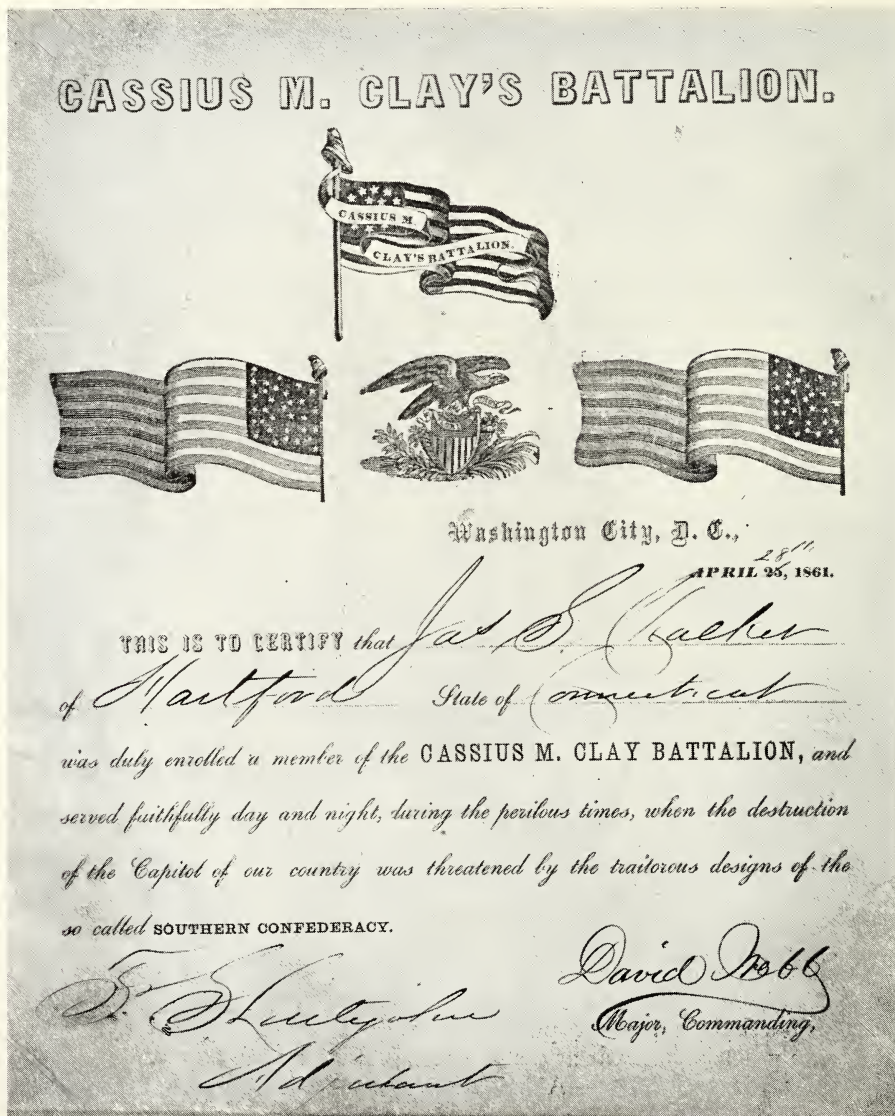 CASSIUS M. CLAY'S BATTALION.
CASSIUS M.
CLAY'S BATTALION.
Washington City, D. C.,
28th
APRIL 25, 1861.
THIS IS TO CERTIFY that Jas S. Chalker
of Hartford State of Connecticut
was duly enrolled a member of the CASSIUS M. CLAY BATTALION, and
served faithfully day and night, during the perilous times, when the destruction
of the Capitol of our country was threatened by the traitorous designs of the
so called SOUTHERN CONFEDERACY.
David Webb
Major, Commanding,
Adjutant